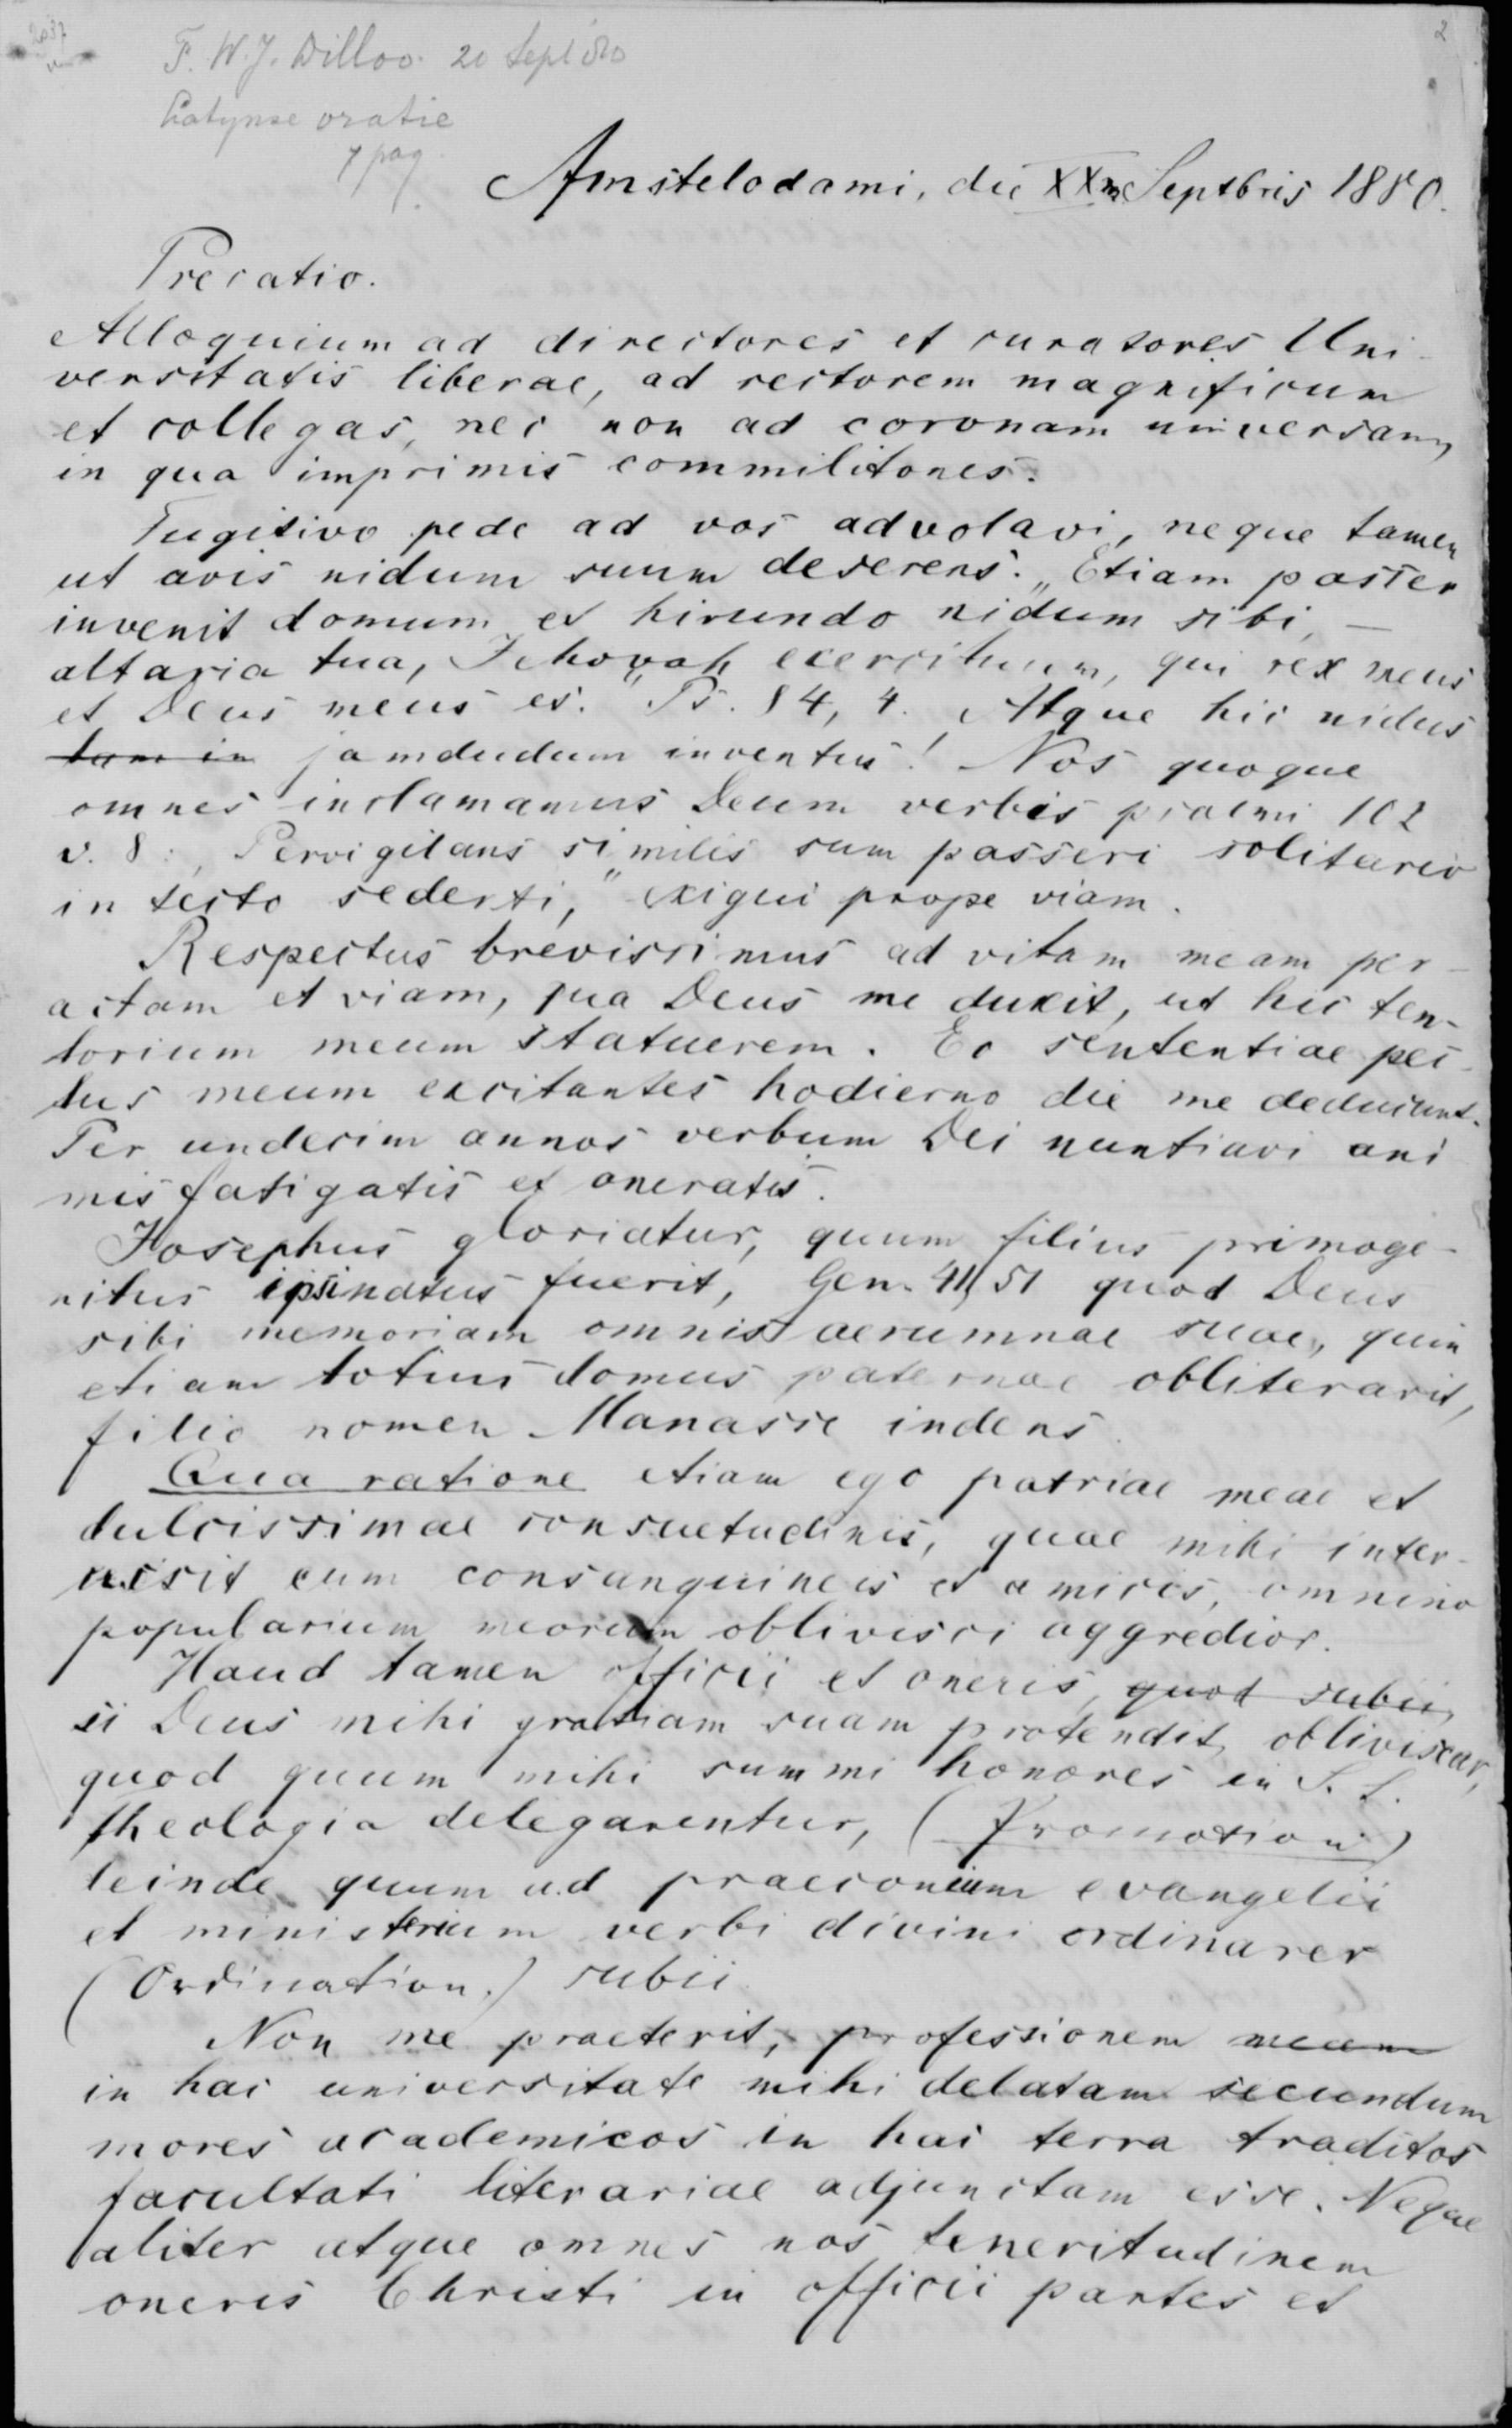 2
F. W. J. Dilloo. 20 Sept '80
Latynse oratie
7 pag.
Amstelodami, die XXm Septbris 1880.
Precatio.
Alloquium ad directores et curatores Uni-
versitatis liberae, ad rectorem magnificum
et collegas, nec non ad coronam universam,
in qua imprimis commilitones.
Fugitivo pede ad vos advolavi, neque tamen
ut avis nidum suum deserens. „Etiam passer
invenit domum et hirundo nidum sibi, —
altaria tua, Jehovah exercituum, qui rex meus
et Deus meus es." Ps. 84, 4. Atque hic nidus
tam in jamdudum inventus! Nos quoque
omnes inclamamus Deum verbis psalmi 102
v. 8: „Pervigilans similis sum passeri solitario
in tecto sedenti," exigui prope viam.
Respectus brevissimus ad vitam meam per-
actam et viam, qua Deus me duxit, ut hic ten-
torium meum statuerem. Eo sententiae pec-
tus meum excitantes hodierno die me deducunt.
Per undecim annos verbum Dei nuntiavi ani
mis fatigatis et oneratis.
Josephus gloriatur, quum filius primoge-
nitus ipsi natus fuerit, Gen. 41, 51 quod Deus
sibi memoriam omnis aerumnae suae, quin
etiam totius domus paternae obliterarit,
filio nomen Manasse indens.
Qua ratione etiam ego patriae meae et
dulcissimae consuetudinis, quae mihi inter-
cessit cum consanguineis et amicis, omnino
popularium meorum oblivisci aggredior.
Haud tamen officii et oneris, quod subii,
si Deus mihi gratiam suam protendit, obliviscar,
quod quum mihi summi honores in S. S.
theologia delegarentur, (Promotion)
deinde quum ad praeconium evangelii
et ministerium verbi divini ordinarer
(Ordination.) subii.
Non me praeterit, professionem meam
in hac universitate mihi delatam secundum
mores academicos in hac terra traditos
facultati literariae adjunctam esse. Neque
aliter atque omnes nos teneritudinem
oneris Christi in officii partes et